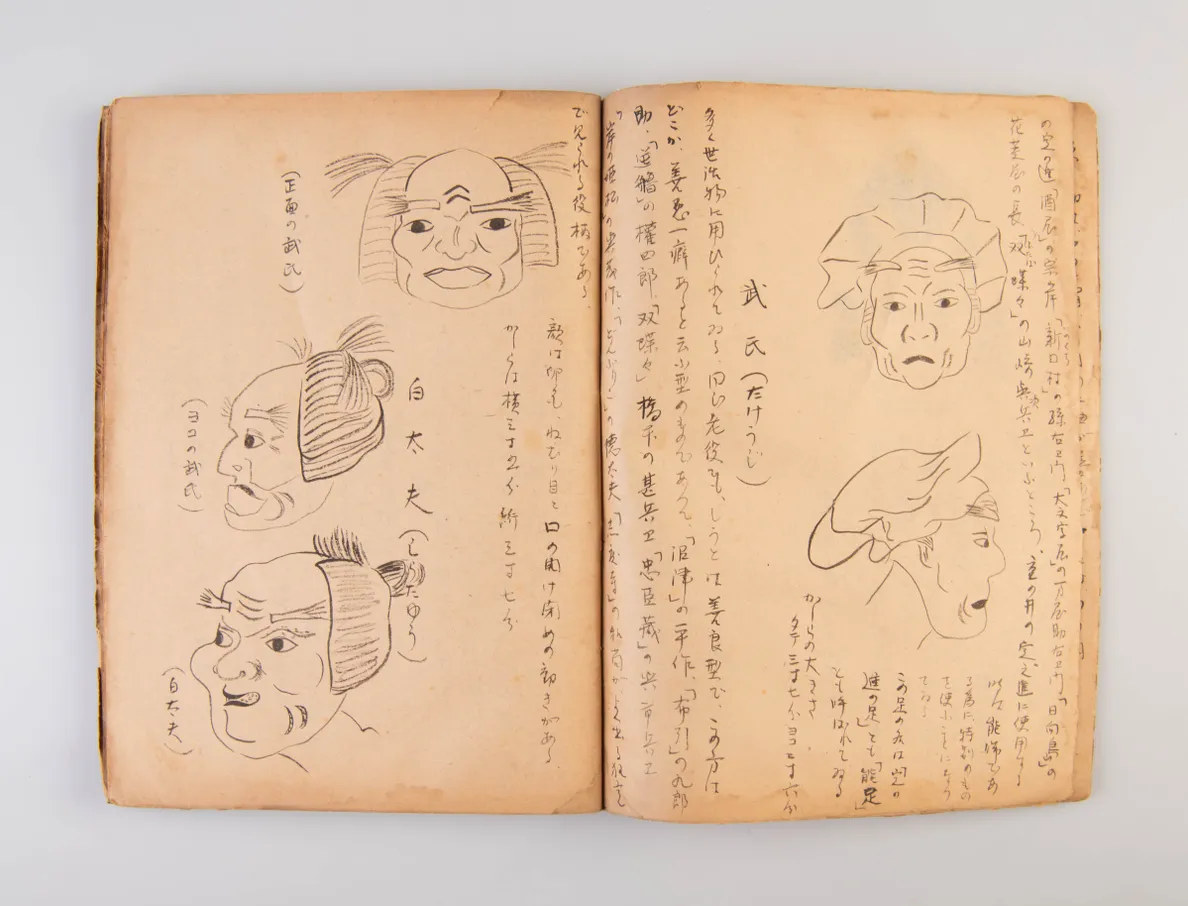 の定之進「酒屋」の宗岸「新口村の孫右エ門」「大文字屋」の万屋助右エ門」「日向島」の
花菱屋の長「双蝶々」の山崎與次兵エといふところ、重の井の定之進に使用する
此は能師であ
る為に特別のもの
を使ふことになつ
てゐる
この足の名は「定の
進の足」とも「能足」
とも呼ばれてゐる
かしらの大きさ
タテ三寸七分ヨコ二寸六分
武氏(たけうじ)
多く世話物に用ひられてゐる、同じ老役でも、しうとは善良型で、この方は
どこか、善悪一癖あると云ふ型のものであつて、「沼津」の平作、「布引」の九郎
助、「逆櫓」の権四郎、「双蝶々」橋本の甚兵エ「忠臣蔵」の與市兵エ
の與茂作、「どんぶりこ」の
で見られる役柄である。
(正面の武氏)
(ヨコの武氏)
白太夫(しらたゆう)
顔は卵色、ねむり目と口の開け閉めの動きがある
かしらは横三寸五分 縦三寸七分
(白太夫)